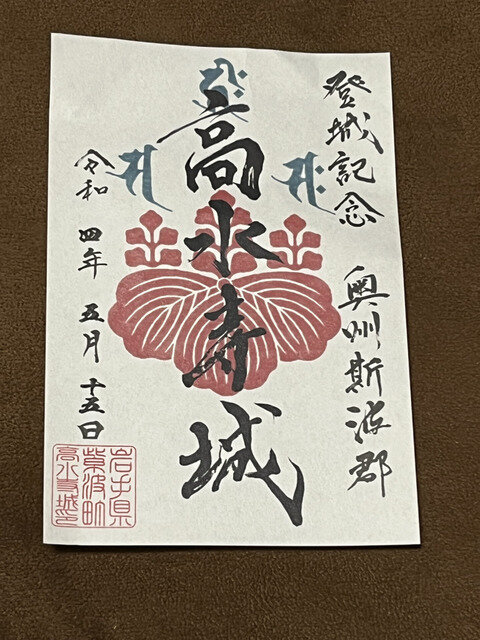 登城記念　奥州斯波郡
高水寺城
令和　四年　五月　十五日
岩手県
紫波町